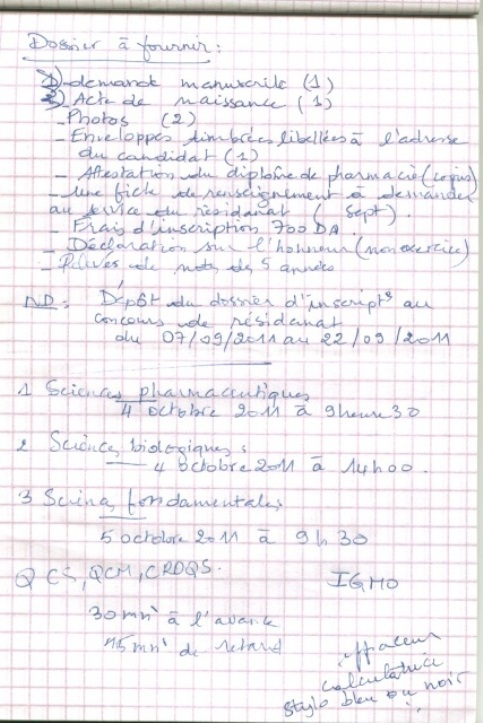 Dossier à fournir :
1) demande manuscrite (1)
2) Acte de naissance (1)
- Photos (2)
- Enveloppes timbrées libellées à l'adresse
du candidat (1)
- Attestation du diplôme de pharmacie (copie)
- une fiche de renseignement à demander
au service du résidanat ( Sept ).
- Frais d'inscription 700 DA.
- Déclaration sur l'honneur (non exercice)
- Relevés de nots des 5 années
NB : Dépôt du dossier d'inscript° au
concours de résidanat
du 07/09/2011 au 22/09/2011
1 Sciences pharmaceutiques
4 octobre 2011 à 9heure 30
2 Sciences biologiques :
4 octobre 2011 à 14h00.
3 Scienes fondamentales
5 octobre 2011 à 9h30
QCS, QCM, CROQS.
IGMO
30mn à l'avance
15mn de retard
effaceur
calculatrice
stylo bleu ou noir